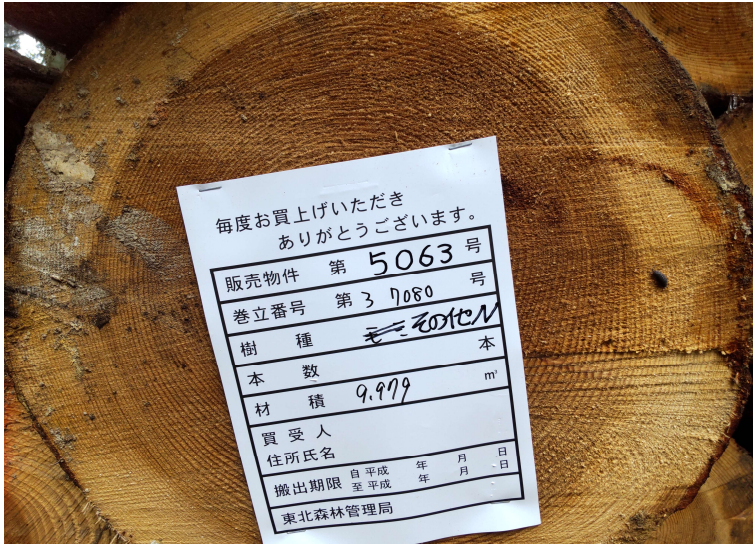 毎度お買上げいただき
ありがとうございます。
販売物件 第 5063 号
巻立番号 第 3 7080 号
樹種 その他ル
本数 本
材積 9.979 m³
買受人
住所氏名
搬出期限 自 平成 年 月 日
至 平成 年 月 日
東北森林管理局